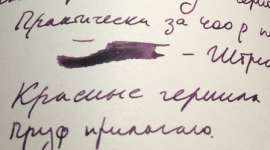 Практически за 400 р
— Штри
Красные чернила
Пруф прилагаю.